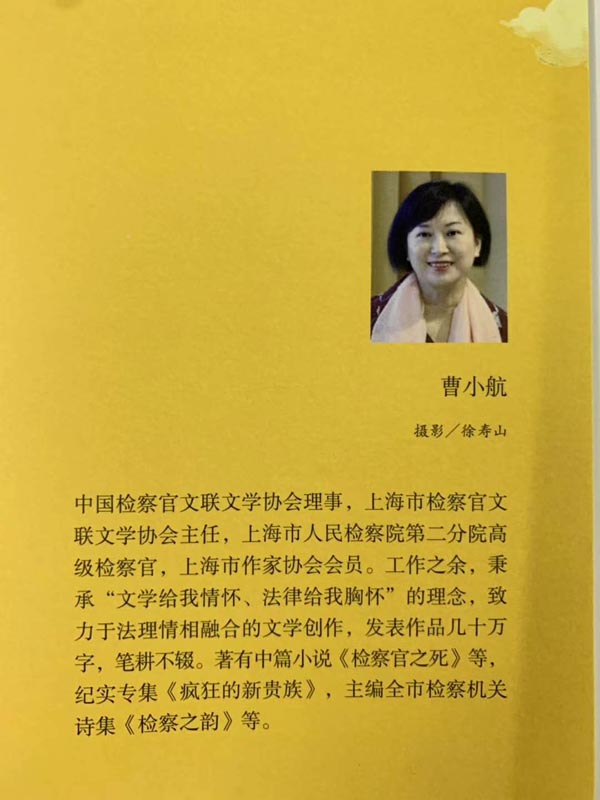 曹小航
摄影／徐寿山
中国检察官文联文学协会理事，上海市检察官文
联文学协会主任，上海市人民检察院第二分院高
级检察官，上海市作家协会会员。工作之余，秉
承“文学给我情怀、法律给我胸怀”的理念，致
力于法理情相融合的文学创作，发表作品几十万
字，笔耕不辍。著有中篇小说《检察官之死》等，
纪实专集《疯狂的新贵族》，主编全市检察机关
诗集《检察之韵》等。